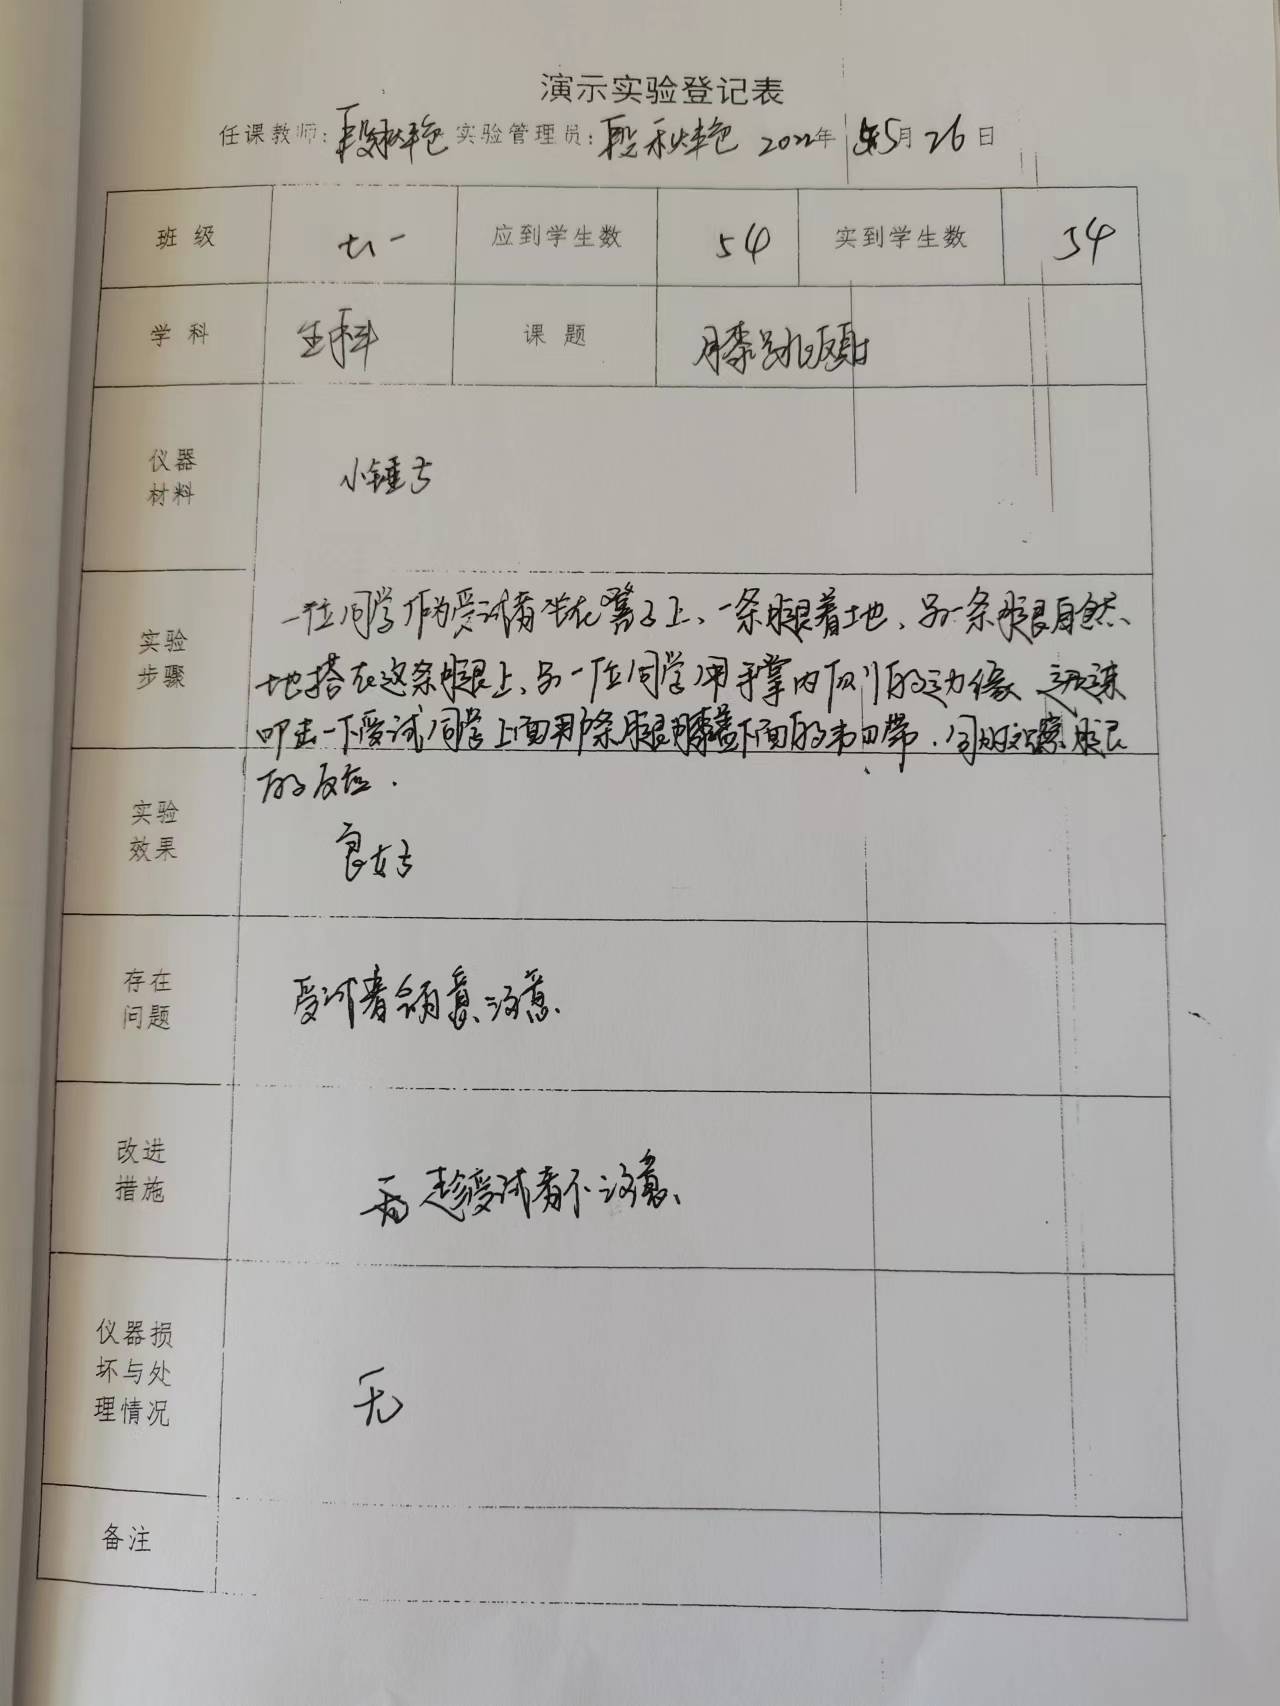 演示实验登记表
任课教师：段秋艳 实验管理员：段秋艳 2022年 5月 26日
班级 七一 应到学生数 54 实到学生数 54
学科 生科 课题 膝跳反射
仪器
材料
小锤
实验
步骤
一位同学作为受试者坐在凳子上、一条腿着地、另一条腿自然、
地搭在这条腿上、另一位同学用手掌内侧的边缘 迅速
叩击一下受试同学上面那条腿膝盖下面的韧带．同时观察腿
的反应．
实验
效果
良好
存在
问题
受试者 注意．
改进
措施
受试者不注意、
仪器损
坏与处
理情况
无
备注